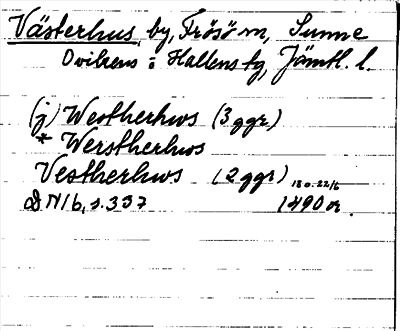 Västerhus by, Frösö sn, Sunne
Ovikens o Hallens tg, Jämtl. l.
(j) Westherhws (3 ggr)
* Werstherhws
Vestherhws (2 ggr) 18 o. 22/6
DN 16, s. 337 1490 or.